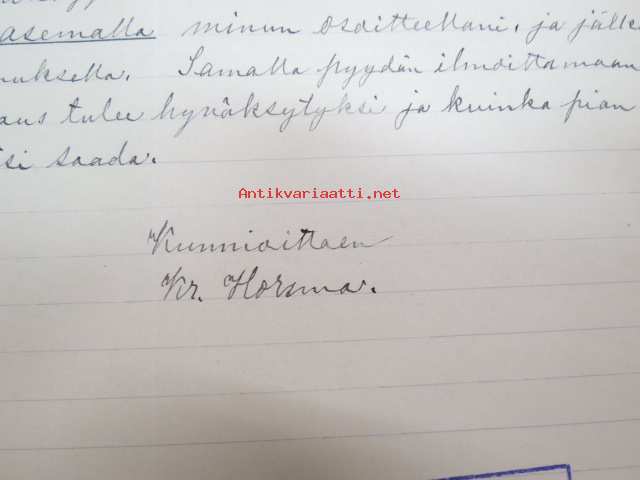 asemalla minun osoitteellani, ja jälki
muksella. Samalla pyydän ilmoittamaan
aus tulee hyväksytyksi ja kuinka pian
isi saada.
Antikvariaatti.net
Kunnioittaen
Kr. Horsma.